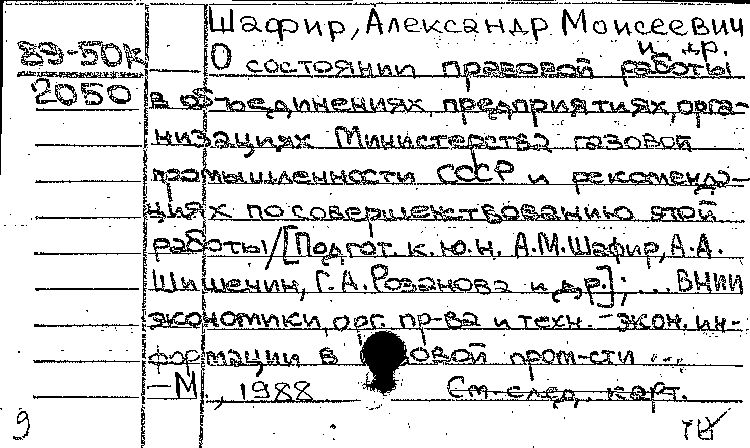 Шафир, Александр Моисеевич
и др.
89-50к
О состоянии правовой работы
2050
в объединениях, предприятиях, орга-
низациях Министерства газовой
промышленности СССР и рекоменда-
циях по совершенствованию этой
работы/[Подгот. к.ю.н. А.М.Шафир, А.А.
Шишенин, Г.А. Розанова и др.]; ... ВНИИ
экономики, орг. пр-ва и техн.-экон. ин-
формации в овой пром-сти ...
-М., 1988 См. след. карт.
9